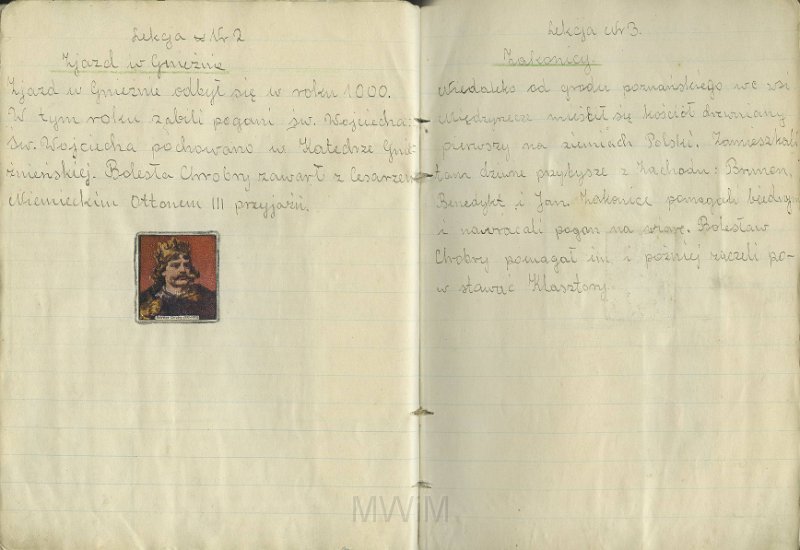 Lekcja Nr 2
Zjazd w Gnieźnie
Zjazd w Gnieźnie odbył się w roku 1000.
W tym roku zabili pogani św. Wojciecha.
Św. Wojciecha pochowano w Katedrze Gnie-
źnieńskiej. Bolesła Chrobry zawarł z Cesarzem
Niemieckim Ottonem III przyjaźń.
Lekcja Nr 3.
Zakonicy
Niedaleko od grodu poznańskiego we wsi
Międzyrzecze mieścił się kościół drewniany
pierwszy na ziemiach Polski. Zamieszkali
tam dziwne przybysze z Zachodu: Brunon,
Benedykt i Jan. Zakonice pomagali biednym
i nawracali pogan na wiarę. Bolesław
Chrobry pomagał im i później zaczeli po-
w stawać Klasztory.
MWiM